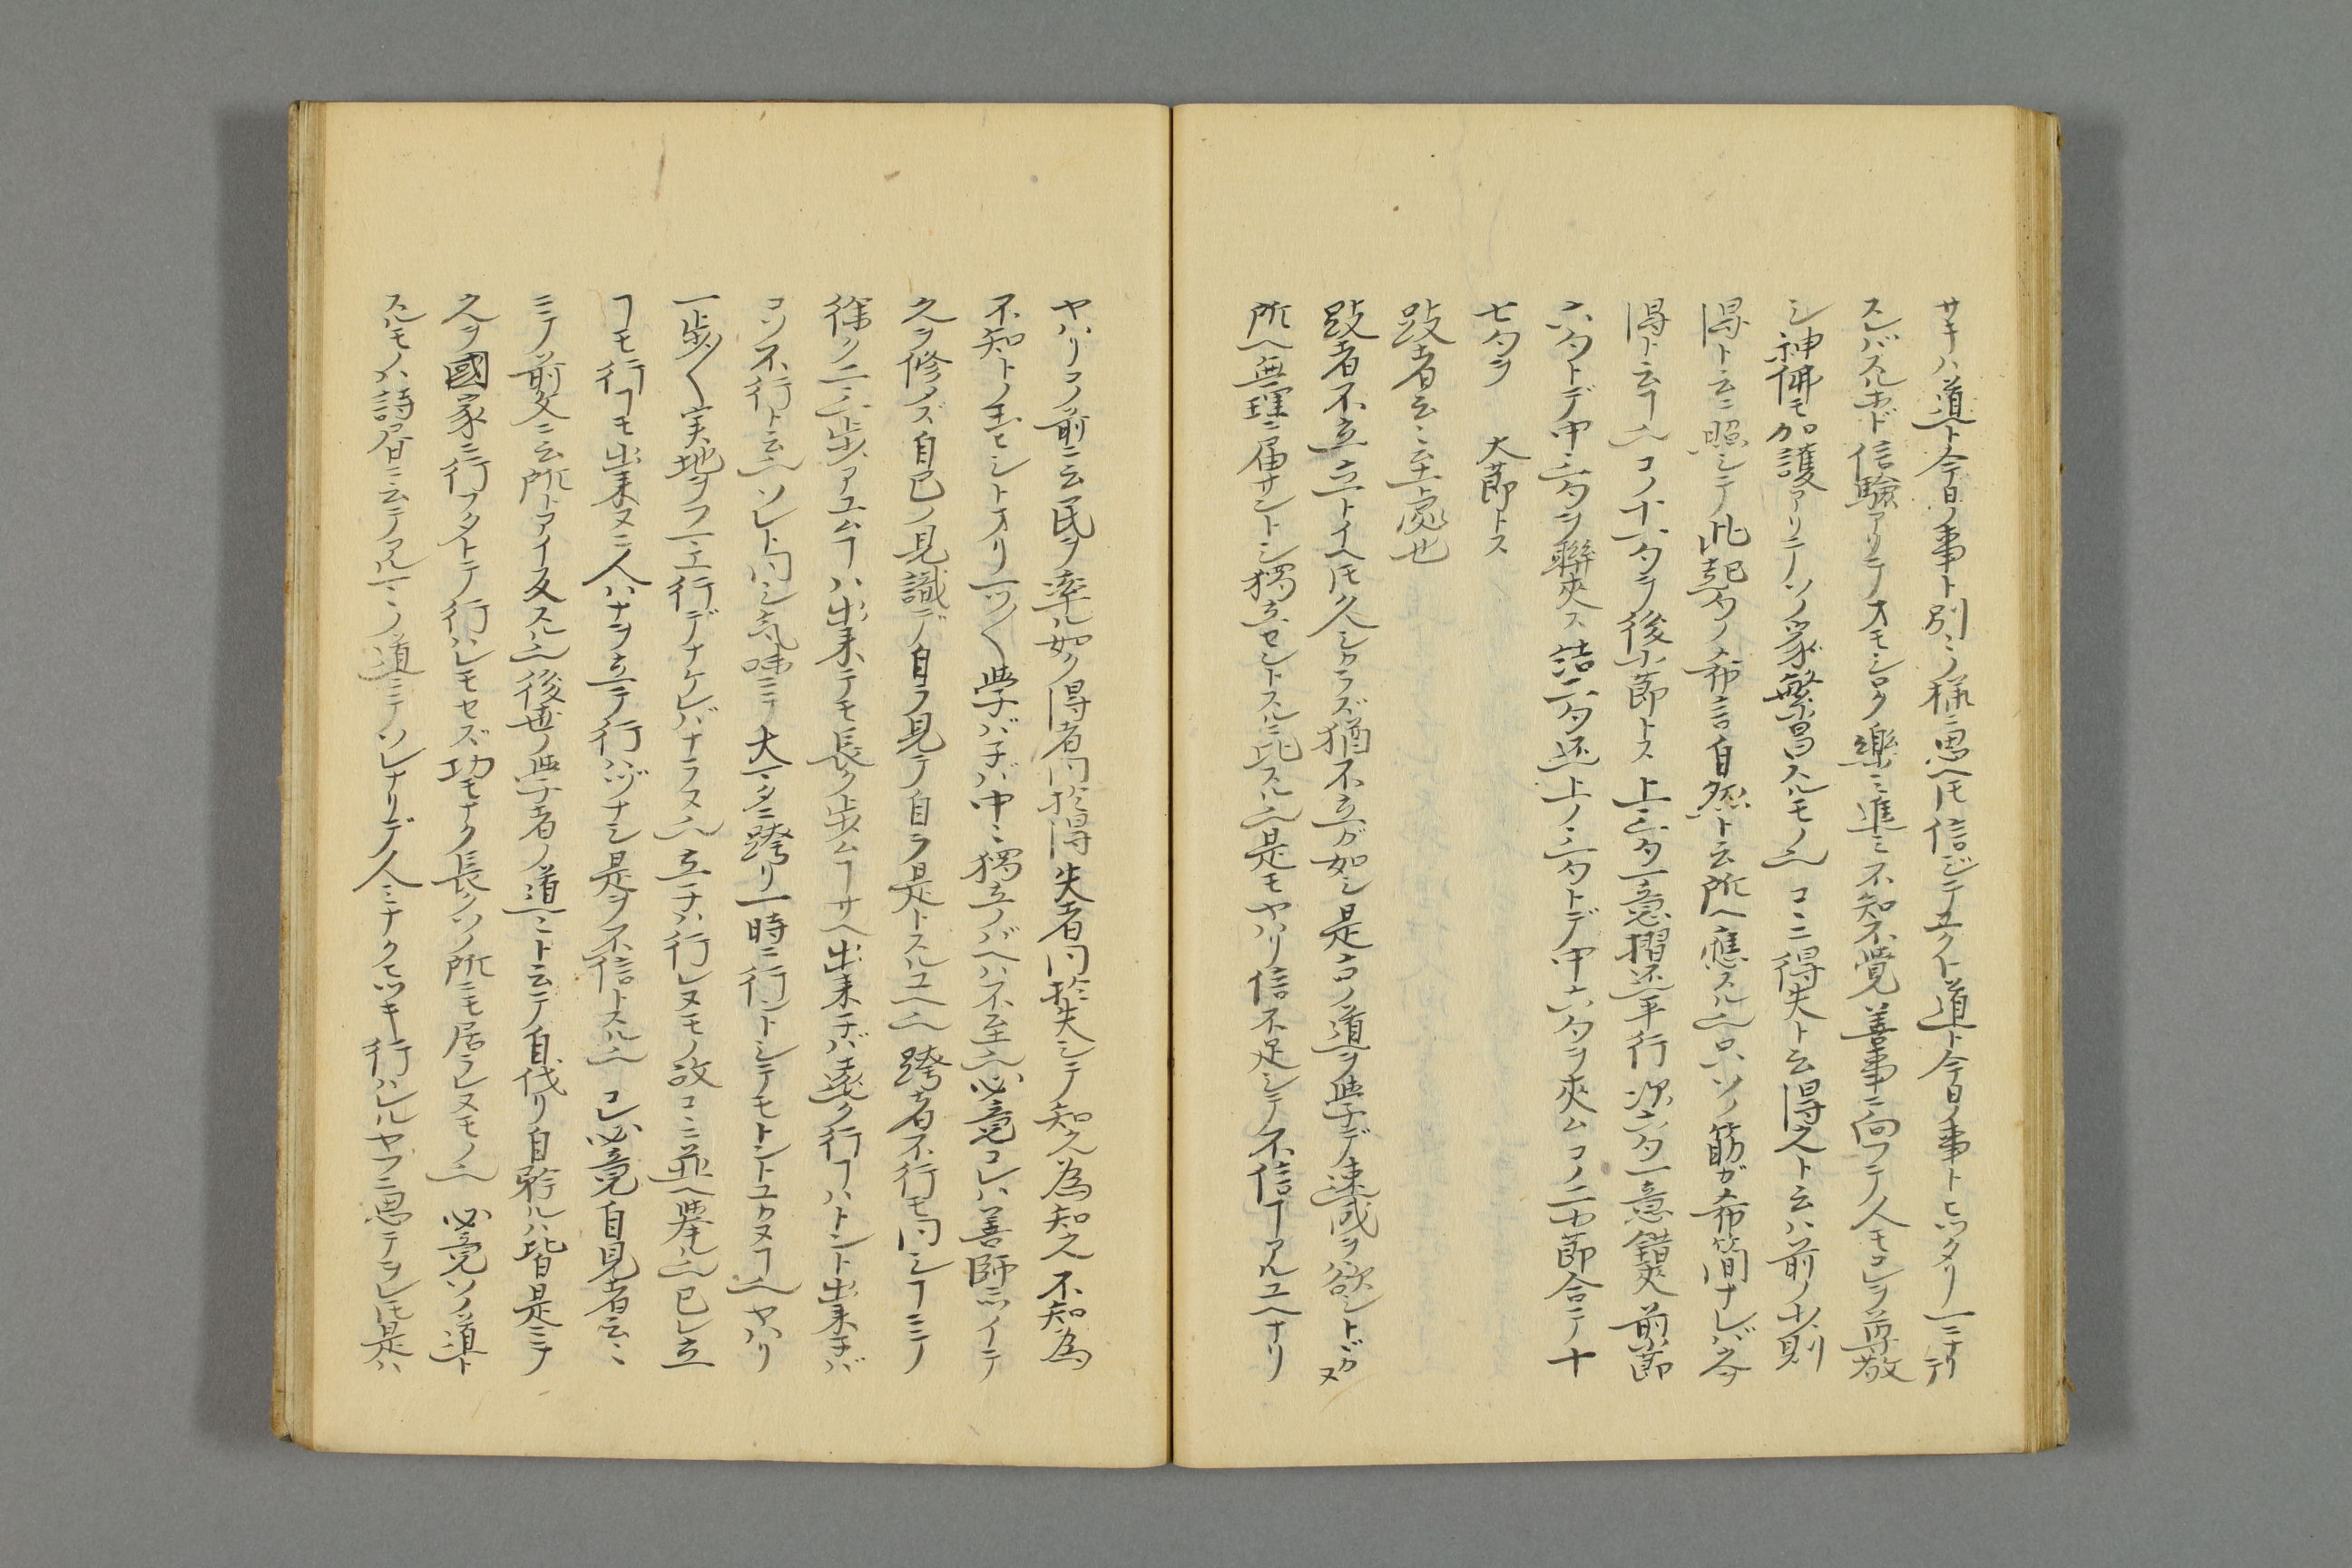 サキハ道ト今日ノ事ト別ニノ様ニ思ヘ𪜈信ジテユクト道ト今日ノ事トヒツタリ一ニナリテ
スレバスルホド信験アリテオモシロク樂ミ進ミ不知不覺善事ニ向フテ人モコレヲ尊敬
シ神佛モ加護アリテソノ家繁昌スルモノ也コヽニ得失ト云得之ト云ハ前ノ少則
得ト云ニ照シテ此起句ノ希言自然ト云所ヘ應スル也只ソノ筋ガ希簡ナレバ今
得ト云ヿ也コノ十六句ヲ後小節トス上三句一意摺还平行次六句一意錯夾前節
六句トデ中三句ヲ聯夾ス結二句还上ノ三句トデ中六句ヲ夾ムコノ二中節合テ十
七句ヲ　大節トス
跂者云々至處也
跂者不立立トイヘ𪜈久シカラズ猶不立ガ如シ是古ノ道ヲ學デ速成ヲ欲シトドカヌ
所ヘ無理ニ届サントシ獨立セントスルニ比スル也是モヤハリ信不足シテ不信ヿアルユヘナリ
ヤハリコノ前ニ云民ヲ率ル如ク得者同於得失者同於失シテ知之為知之不知為
不知トノ玉ヒシトオリ一ツ〱學バ子バ中々獨立ノバヘハ不至也必竟コレハ善師ニツイテ
久ヲ修メズ自己ノ見識デ自ラ見テ自ラ是トスルユヘ也跨者不行モ同シヿニテ
徐ク二三歩アユムヿハ出来テモ長ク歩ムヿサヘ出来子バ遠ク行ヿハトント出来子バ
コソ不行ト云也ソレト同シ気味ニテ大マタニ跨リ一時ニ行ントシテモトントユカヌヿ也ヤハリ
一歩〱実地ヲフマエ行デナケレバナラヌ也立子ハ行レヌモノ故コヽニ並ヘ擧ル也已レ立
ヿモ行ヿモ出来ヌニ人ハナヲ立テ行ハヅナシ是ヲ不信トスル也コレ必竟自見者云々
ニテ前文ニ云所トアイ反スル也後世ノ學者ノ道ニト云テ自伐リ自矜ルハ皆是ニテ
久ヲ國家ニ行フタトテ行ハレモセズ功モナク長クソノ所ニモ居ラレヌモノ也必竟ソノ道ト
スルモノハ詩ヲ谷ニ云テアル一ミノ道ニテソレナリデ人ミナクヒツキ行ハレルヤフニ思テヲレ𪜈是ハ